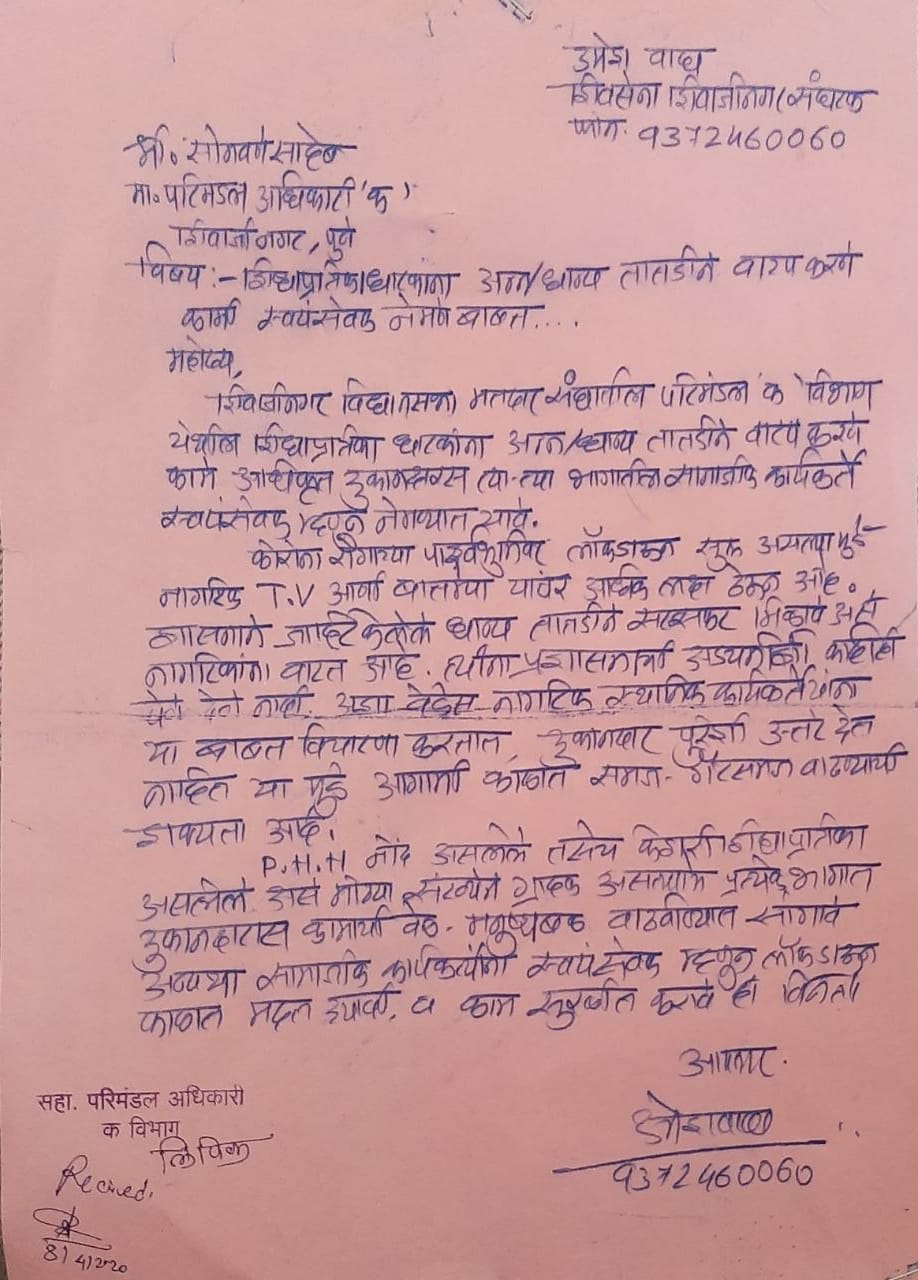 उमेश वाघ
शिवसेना शिवाजीनगर संघटक
फोन: 9372460060
श्री. सोनवणे साहेब
मा. परिमंडल अधिकारी 'क'
शिवाजीनगर, पुणे
विषय :- शिधापत्रिकाधारकांना अन्न/धान्य तातडीने वाटप करणे
कामी स्वयंसेवक नेमणे बाबत....
महोदय,
शिवाजीनगर विधानसभा मतदार संघातील परिमंडल 'क' विभाग
येथील शिधापत्रिका धारकांना अन्न/धान्य तातडीने वाटप करणे
कामे अधिकृत दुकानदारास त्या-त्या भागातील सामाजिक कार्यकर्ते
स्वयंसेवक म्हणून नेमण्यात यावे.
कोरोना रोगाच्या पार्श्वभुमीवर लॉकडाऊन सुरू असल्या मुळे
नागरिक T.V आणी बातम्या यावर अधिक लक्ष ठेऊन आहे.
शासनाने जाहिर केलेले धान्य तातडीने सरसकट मिळावे असे
नागरिकांना वाटत आहे. त्यांना प्रशासनाची अडचण काहीही
घेणे देणे नाही. अशा वेळेस नागरिक स्थानिक कार्यकर्ते यांना
या बाबत विचारणा करतात, दुकानदार पुरेशी उत्तरे देत
नाहित या मुळे आगामी काळात समज-गैरसमज वाढण्याची
शक्यता आहे.
P.H.H नोंद असलेले तसेच केशरी शिधापत्रिका
असलेले असे मोठ्या संख्येने ग्राहक असल्याने प्रत्येक भागात
दुकानदारास कामाची वेळ - मनुष्यबळ वाढविण्यात सांगावे
अन्यथा सामाजिक कार्यकर्त्यांना स्वयंसेवक म्हणून लॉकडाऊन
काळात मदत द्यावी, व काम सुरळीत करावे ही विनंती
आपला.
9372460060
सहा. परिमंडल अधिकारी
क विभाग
लिपिक
Recived.
8/4/2020